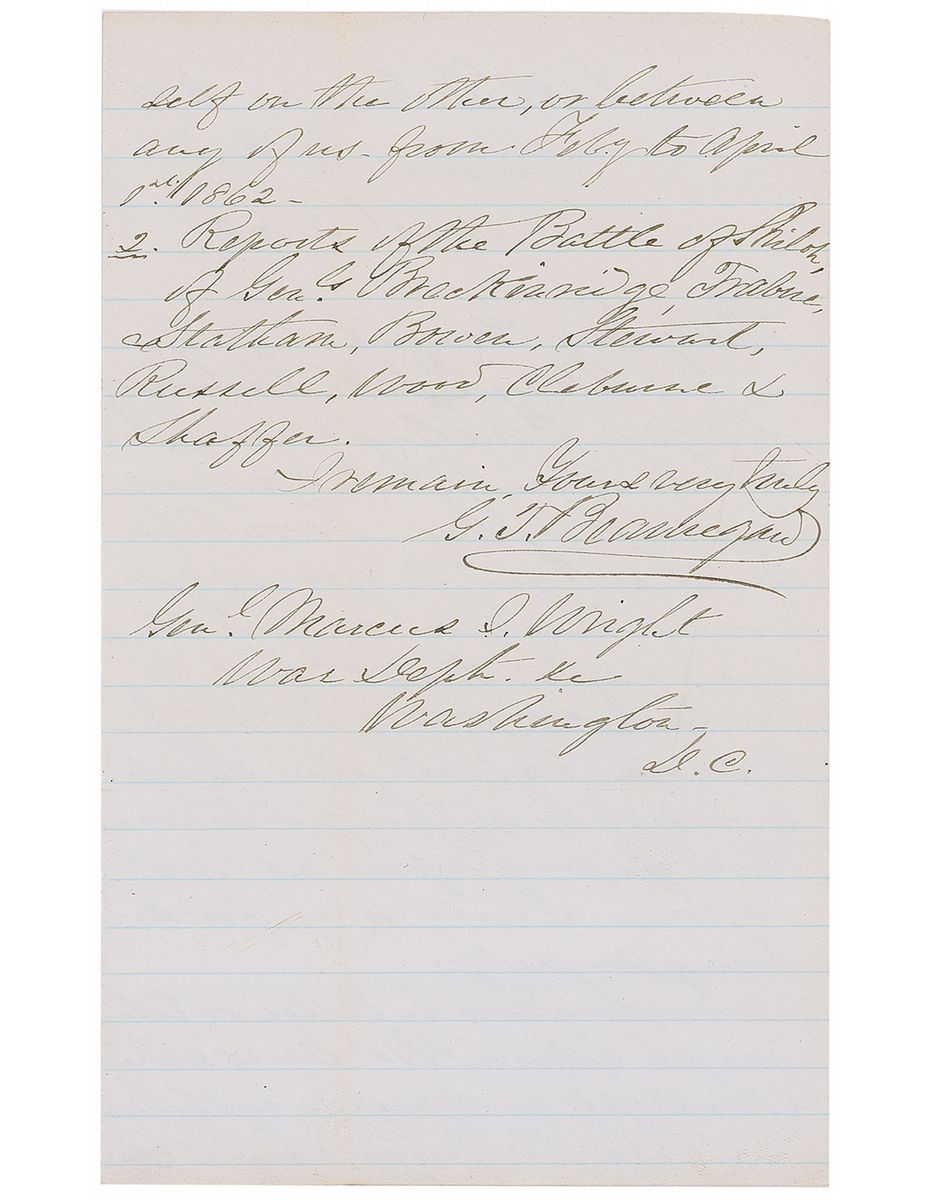 self on the other, or between
any of us - from Feby. to April
1st. 1862 -
2. Reports of the Battle of Shiloh,
of Genls Breckinridge, Trabue,
Statham, Bowen, Stewart,
Russell, Wood, Cleburne &
Shaffer.
I remain, Yours very truly
G. T. Beauregard
Genl. Marcus J. Wright
War Dept. &c
Washington -
D. C.